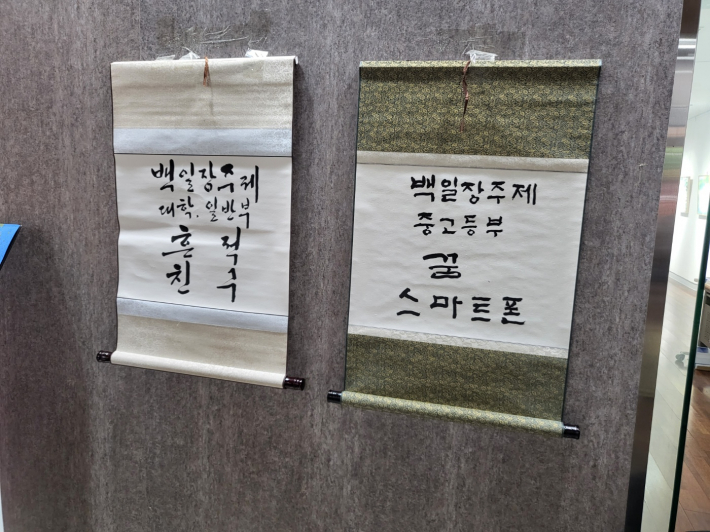 백일장주제
대학. 일반부
흔적
친수
백일장주제
중고등부
꿈
스마트폰